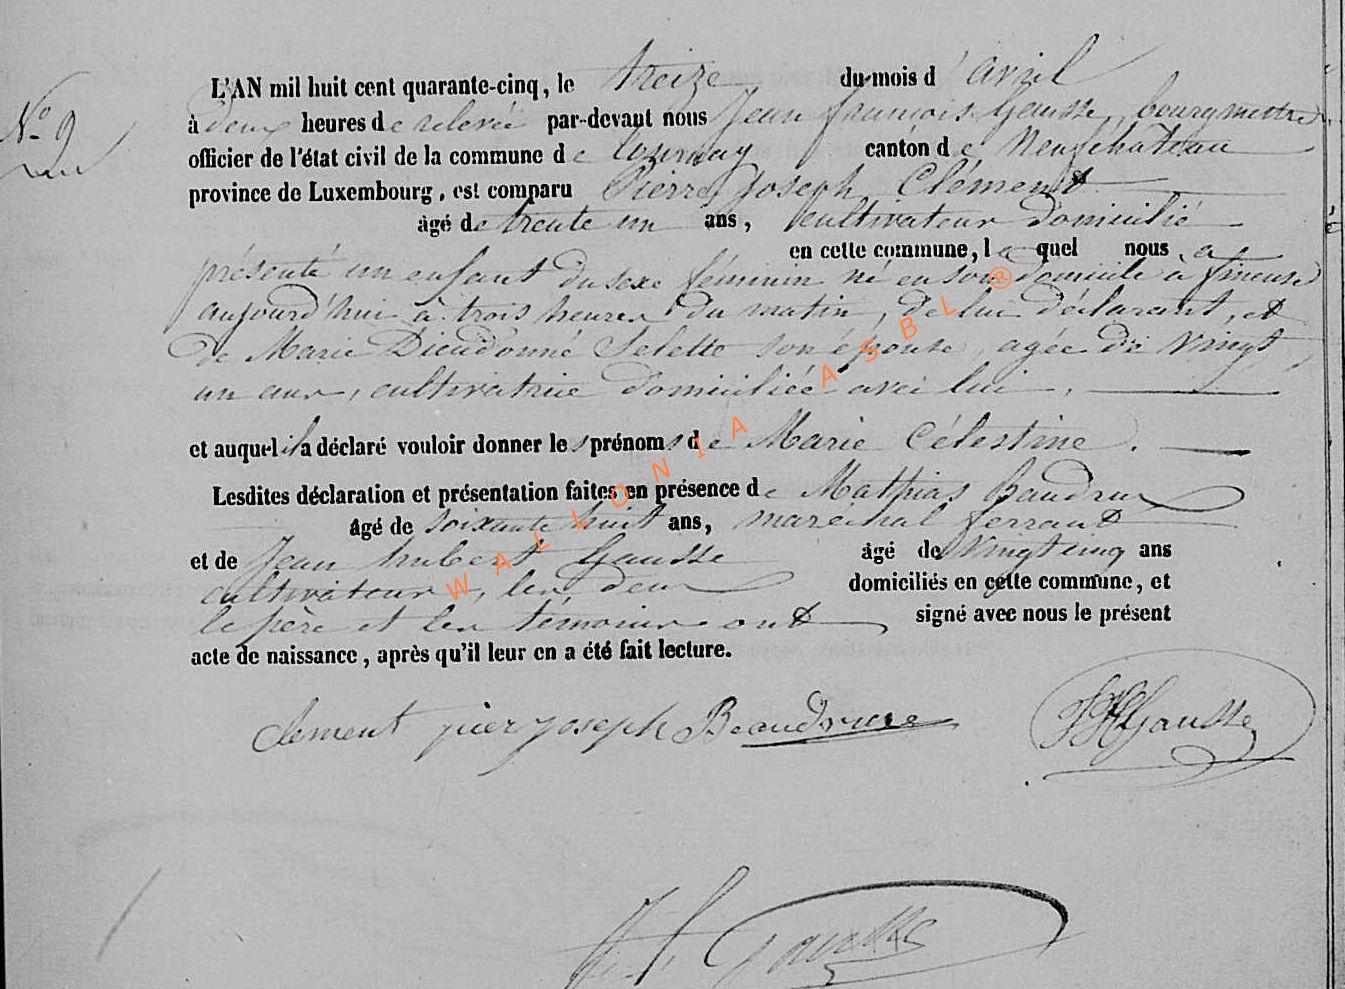 N° 9
L'AN mil huit cent quarante-cinq, le treize du mois d'avril
à deux heures de relevée par-devant nous Jean françois Gausse, bourgmestre,
officier de l'état civil de la commune de tournay canton de Neufchâteau
province de Luxembourg, est comparu Pierre Joseph Clément
âgé de trente un ans, cultivateur domicilié
en cette commune, le quel nous a
présenté un enfant du sexe féminin né en son domicile à fineuse
aujourd'hui à trois heures du matin, de lui déclarant, et
de Marie Dieudonné Selette son épouse, agée de vingt
un ans, cultivatrice domiciliée avec lui,
et auquel il a déclaré vouloir donner les prénoms de Marie Célestine.
Lesdites déclaration et présentation faites en présence de Mathias Baudrux
âgé de soixante huit ans, maréchal ferrant
et de Jean hubert Gausse âgé de vingt cinq ans
cultivateur, les deux domiciliés en cette commune, et
le père et les témoins ont signé avec nous le présent
acte de naissance, après qu'il leur en a été fait lecture.
Clement pier joseph Beaudrue JH Gausse
J. f. Gausse
WALLONIA ASBL ®